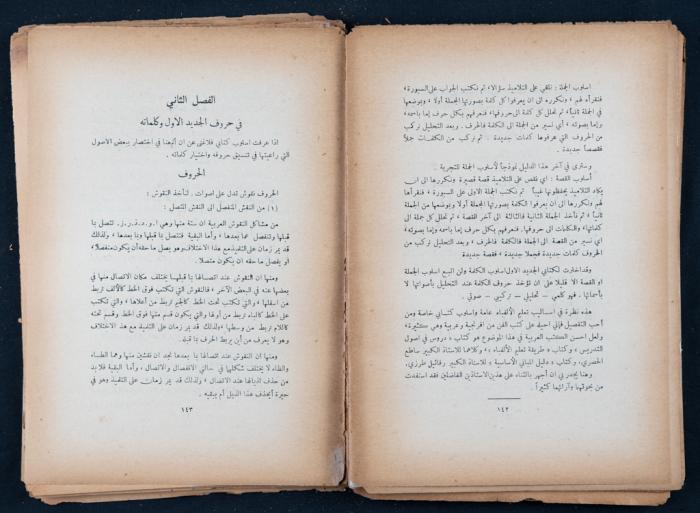 اسلوب الجملة : نلقي على التلاميذ سؤالا، ثم نكتب الجواب على السبورة ،
فنقرأه لهم ، ونكرره الى ان يعرفوا كل كلمة بصورتها المجملة أولا ، وبوضعها
في الجملة ثانياً، ثم نحلل كل كلمة الى حروفها، فنعرفهم بكل حرف إما باسمه،
وإما بصوته ، أي نسير من الجملة الى الكلمة فالحرف . وبعد التحليل نركب
من الحروف التي عرفوها كلمات جديدة . ثم نركب من الكلمات جملاً
فقصصاً جديدة .
وسترى في آخر هذا الدليل نموذجاً لأسلوب الجملة للتجربة .
أسلوب القصة : اي نقص على التلاميذ قصة قصيرة ونكررها الى ان
يكاد التلاميذ يحفظونها غيباً ثم نكتب الجملة الاولى على السبورة ، فنقرأها
لهم ونكررها الى ان يعرفوا الكلمة بصورتها المجملة أولا وبوضعها من الجملة
ثانياً ، ثم نأخذ الجملة الثانية فالثالثة الى آخر القصة ، ثم نحلل كل جملة الى
كلماتها، والكلمات الى حروفها, فنعرفهم بكل حرف إما باسمه وإما بصوته ،
اي نسير من القصة الى الجملة فالكلمة فالحرف ، وبعد التحليل نركب من
الحروف كلمات جديدة فجملا جديدة ، فقصة جديدة
وقد اخترت لكتابي الجديد الاول اسلوب الكلمة ولن اتبع اسلوب الجملة
او القصة الا قليلا على ان تؤخذ حروف الكلمة عند التحليل بأصواتها لا
بأسمائها . فهو كلمي – تحليلي – تركيبي – صوتي .
هذه نظرة في اساليب تعليم الألفباء عامة واسلوب كتابي خاصة ومن
أحب التفصيل فإني احيله على كتب الفن من افرنجية وعربية وهي كثيرة،
ولعل احسن الكتب العربية في هذا الموضوع هو كتاب ، دروس في اصول
التدريس ، وكتاب ، طريقة تعليم الألفباء ، وكلاهما للاستاذ الكبير ساطع
الحصري، وكتاب ، دليل المباني الأساسية ، للاستاذ الكبير رفائيل طرزي.
وهنا يجدر بي ان أجهر بالثناء على هذين الاستاذين الفاضلين فقد استفدت
من بحوثهما وآرائهما كثيراً .
١٤٢
الفصل الثاني
في حروف الجديد الاول وكلماته
اذا عرفت اسلوب كتابي فلا غنى عن ان أتبعها في اختصار ببعض الاصول
التي راعيتها في تنسيق حروفه واختيار كلماته .
الحروف
الحروف نقوش تدل على اصوات . لنأخذ النقوش :
(١) من النقش المنفصل الى النقش المتصل :
من مشاكل النقوش العربية ان ستة منها وهي ا، و، د، ذ، ر، ز، تتصل بما
قبلها وتنفصل عما بعدها ، وأما البقية فتتصل بما قبلها وبما بعدها ، ولذلك
قد يمر زمان على التلميذ مع هذا الاختلاف وهو يصل ما حقه أن يكون منفصلا،
او يفصل ما حقه ان يكون متصلا .
ومنها ان النقوش عند اتصالها بما قبلها يختلف مكان الاتصال في
بعضها عنه في البعض الآخر ، فالنقوش التي تكتب فوق الخط كالألف تربط
من اسفلها ، والتي تكتب تحت الخط كالجيم تربط من أعلاها ، والتي تكتب
على الخط كالباء تربط من أولها والتي يكون قسم منها فوق الخط وقسم تحته
كاللام تربط من وسطها ، ولذلك قد يمر زمان على التلميذ مع هذا الاختلاف
وهو لا يعرف من أين يربط الحرف بما قبله .
ومنها ان النقوش عند اتصالها بما بعدها نجد ان نقشين منها وهما الطاء
والظاء لا يختلف شكلهما في حالتي الانفصال والاتصال ، وأما البقية فلا بد
من حذف اذيالها عند الاتصال ، ولذلك قد يمر زمان على التلميذ وهو في
حيرة أيحذف هذا الذيل ام يبقيه .
١٤٣